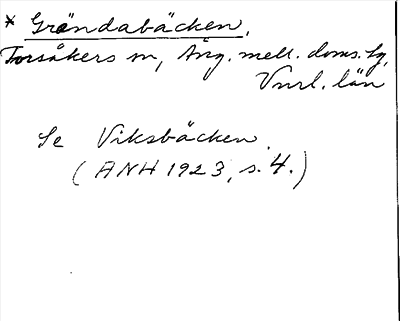 * Gröndabäcken.
Torsåkers sn, Ång. mell. doms. sg,
Vnrl. län
Se Viksbäcken.
(ANH 1923, s. 4.)